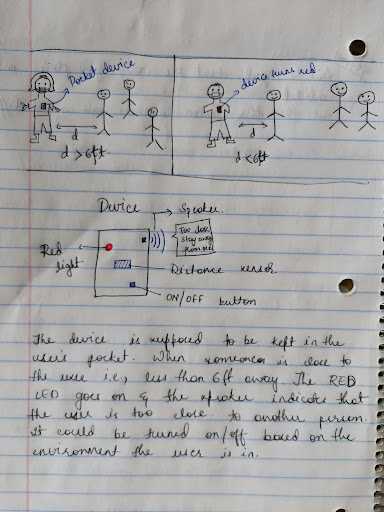 Pocket device
device turns red.
d
d > 6ft.
d
d < 6ft
Device
Speaker.
Too close
stay away
from me!
Red
light
Distance sensor
ON/OFF button
The device is supposed to be kept in the
user's pocket. When someone is close to
the user i.e., less than 6ft away. The RED
LED goes on & the speaker indicates that
the user is too close to another person.
It could be turned on/off based on the
environment the user is in.